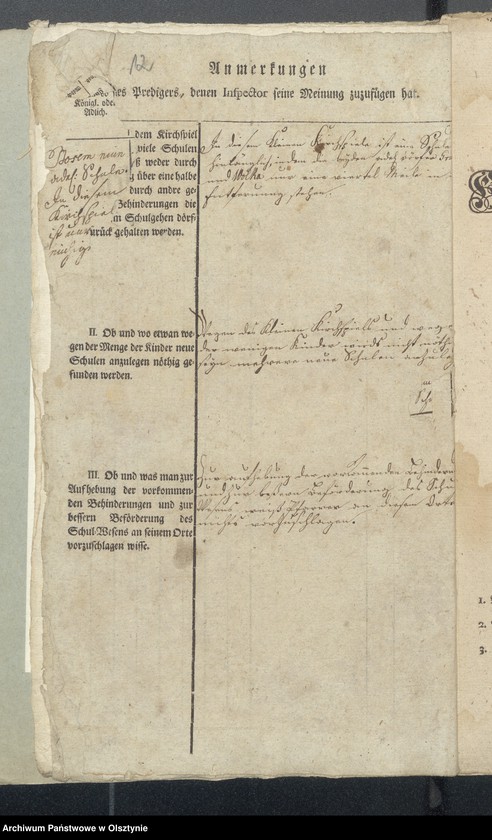 12
Anmerkungen
des Predigers, denen Inspector seine Meinung zuzufügen hat.
Königl. ode.
Adlich.
dem Kirchspiel
viele Schulen
ß weder durch
g über eine halbe
durch andre ge-
Behinderungen die
m Schulgehen dörf-
urück gehalten werden.
adel. Schule.
In diesem
Kirchspiel
ist nur
In diesem kleinen Kirchspiele ist eine Schule
hinlänglich, indem die beyden adel. Dörfer
und Wolka nur eine viertel Meile
Entfernung stehen.
II. Ob und wo etwan we-
gen der Menge der Kinder neue
Schulen anzulegen nöthig ge-
funden werden.
Wegen des kleinen Kirchspiels und wegen
der wenigen Kinder wirds nicht nöth
seyn mehrere neue Schulen anzuleg
III. Ob und was man zur
Aufhebung der vorkommen-
den Behinderungen und zur
bessern Beförderung des
Schul-Wesens an seinem Orte
vorzuschlagen wisse.
Zur Aufhebung der vorkommenden Behinderun
und zur bessern Beförderung des Schul
Wesens weiß Pfarrer an diesem Orte
nichts vorzuschlagen.
1.
2.
3.
Archiwum Państwowe w Olsztynie